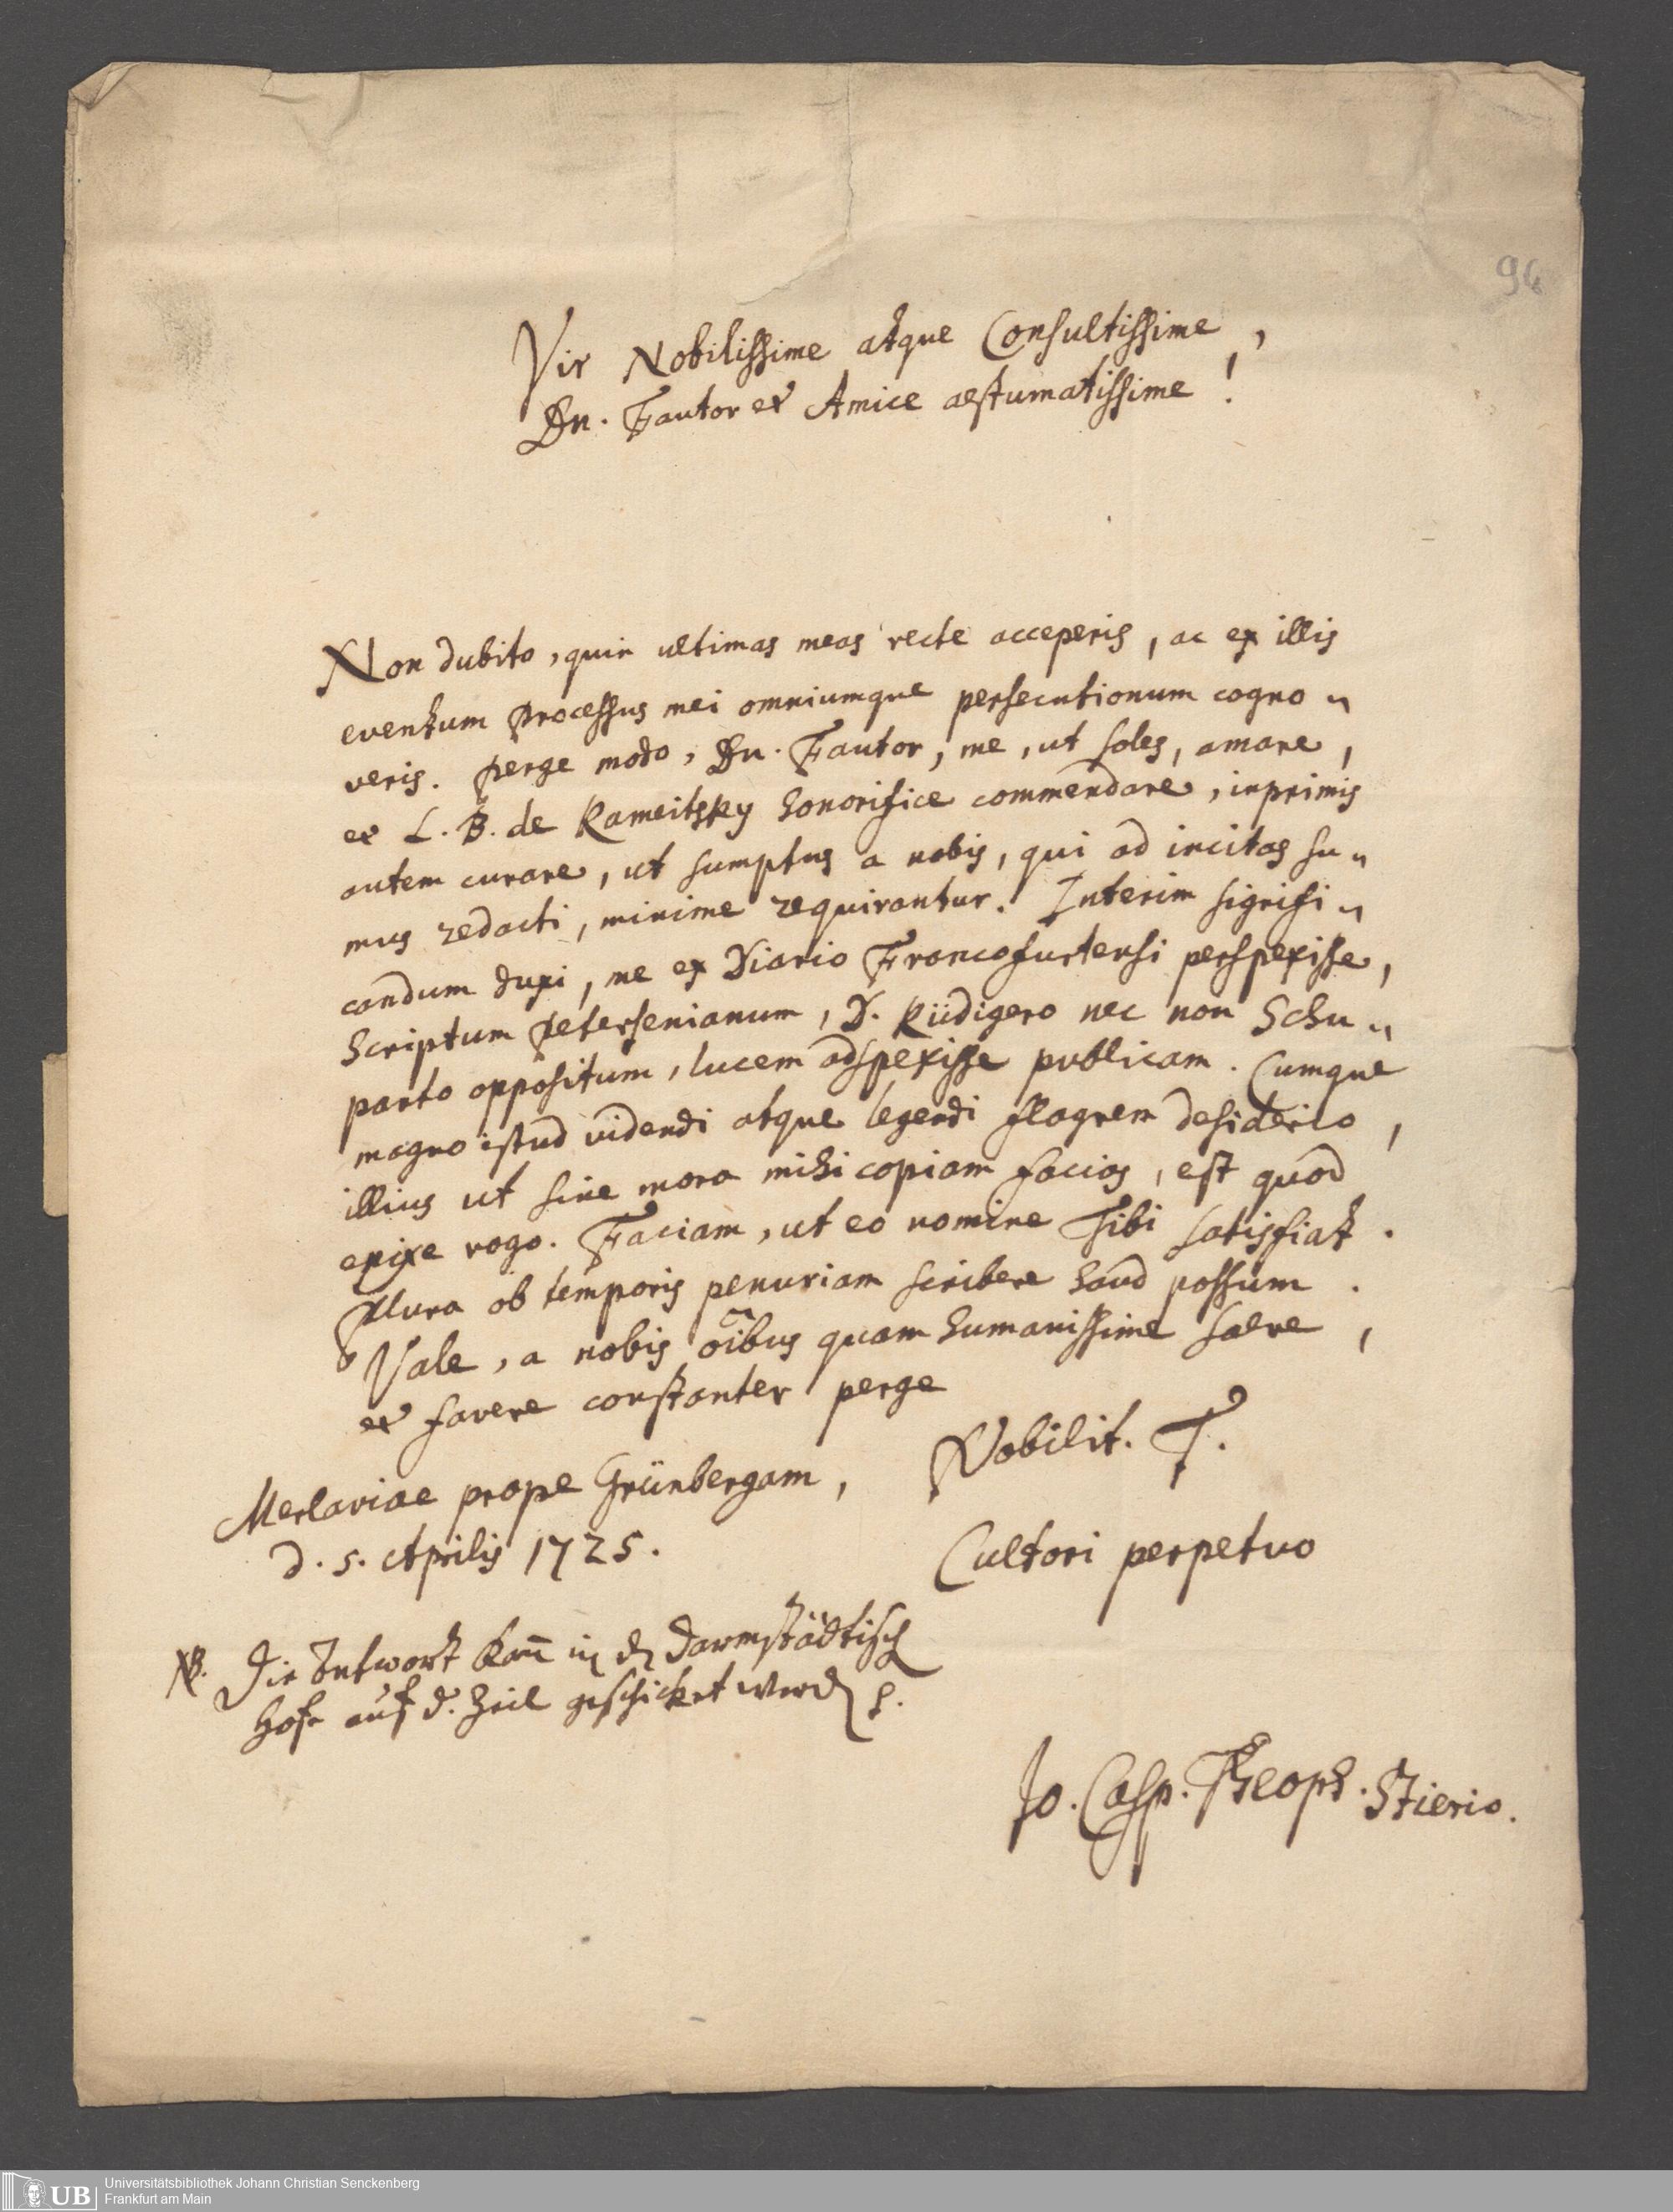 94
Vir Nobilissime atque Consultissime,
Dn. Fautor et Amice aestumatissime!
Non dubito, quin ultimas meas recte acceperis, ac ex illis
eventum processus mei omniumque persecutionum cogno„
veris. Perge modo, Dn. Fautor, me, ut soles, amare,
et L. B. de Kameitsky honorifice commendare, inprimis
autem curare, ut sumptus a nobis, qui ad incitas su„
mus redacti, minime requirantur. Interim signifi„
candum duxi, me ex Diario Francofurtensi perspexisse,
Scriptum Petersenianum, D. Rüdigero nec non Schu„
parto oppositum, lucem adspexisse publicam. Cumque
magno istud videndi atque legendi flagrem desiderio,
illius ut sine mora mihi copiam facias, est quod
enixe rogo. Faciam, ut eo nomine Tibi satisfiat.
Plura ob temporis penuriam scribere haud possum.
Vale, a nobis oi͂bus quam humanissime salve,
et favere constanter perge
Nobilit. T.
Merlaviae prope Grünbergam,
d. 5. Aprilis 1725.
Cultori perpetuo
NB. Die Antwort kan̄ in den Darmstädtisch
Hof auf d. Zeil geschicket werden
Jo. Casp. Theoph. Stierio.
UB Universitätsbibliothek Johann Christian Senckenberg
Frankfurt am Main